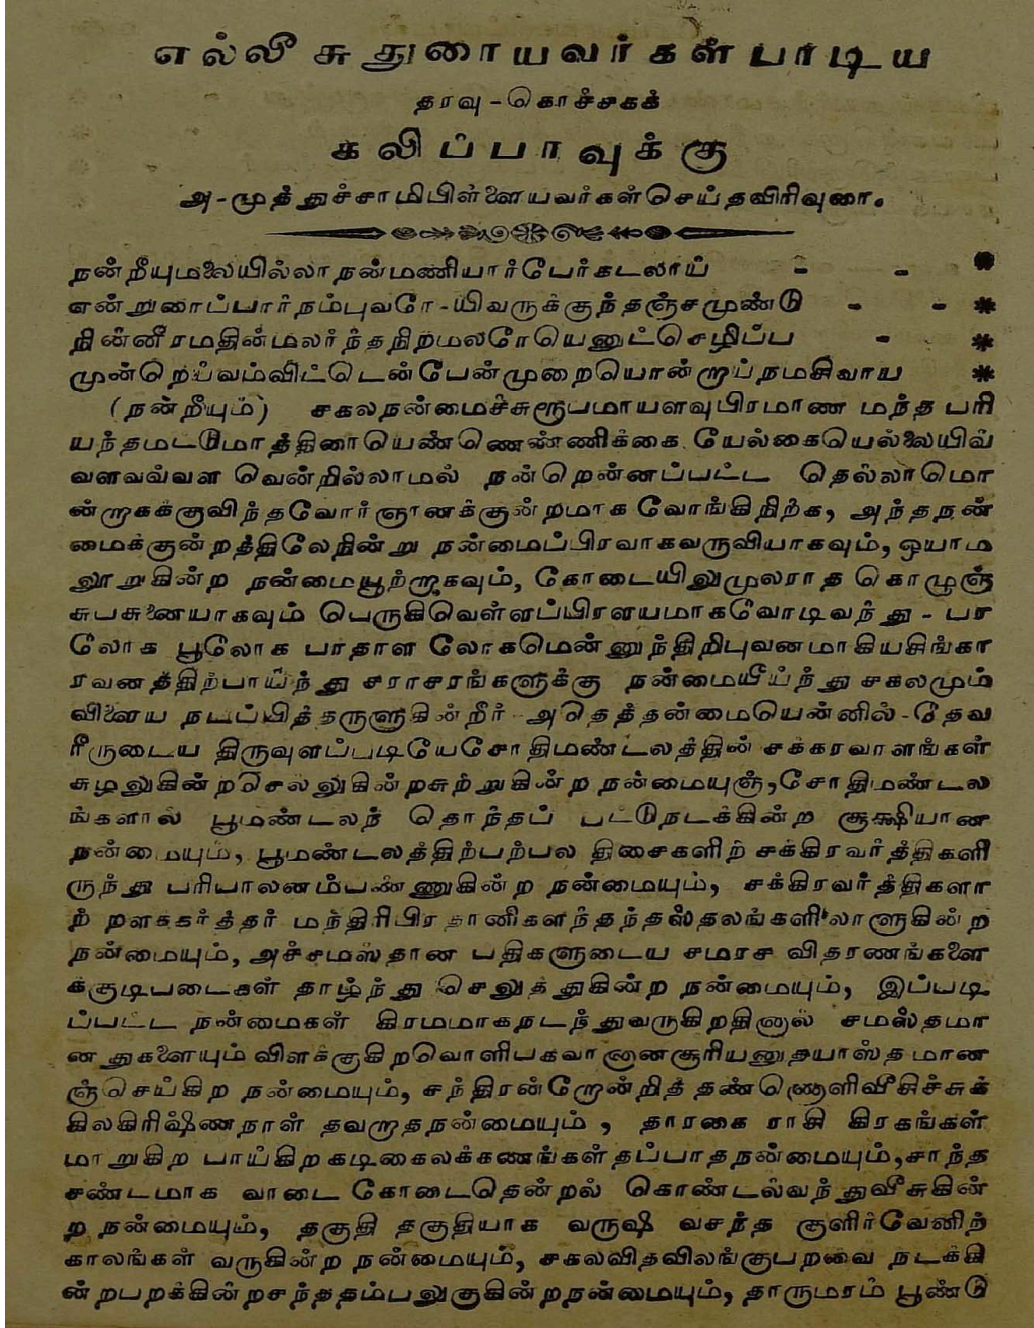 எல்லீசுதுரையவர்கள்பாடிய
தரவு-கொச்சகக்
கலிப்பாவுக்கு
அ-முத்துச்சாமிபிள்ளையவர்கள்செய்தவிரிவுரை.
நன்றீயுமலையில்லாநன்மணியார்பேர்கடலாய் - - *
என்றுரைப்பார்நம்புவரே-யிவருக்குந்தஞ்சமுண்டு - - *
நின்னீரமதின்மலர்ந்தநிற்மலரேயெனுட்செழிப்ப - *
முன்றெய்வம்விட்டென்பேன்முறையொன்றுப்நமசிவாய *
(நன்றீயும்) சகலநன்மைச்சுரூபமாயளவுபிரமாண மந்த பரி
யந்தமட்டுமாத்திரையெண்ணெண்ணிக்கை யேல்கையெல்லையிவ்
வளவவ்வள வென்றில்லாமல் நன்றெண்ணப்பட்ட தெல்லாமொ
ன்றாகக்குவிந்தவோர்ஞானக்குன்றமாக வோங்கிநிற்க, அந்தநன்
மைக்குன்றத்திலேநின்று நன்மைப்பிரவாகவருவியாகவும், ஒயாம
லூறுகின்ற நன்மையூற்றாகவும், கோடையிலுமுலராத கொழுஞ்
சுபசுனையாகவும் பெருகிவெள்ளப்பிரளயமாகவோடிவந்து - பர
லோக பூலோக பாதாள லோகமென்னுந்திரிபுவனமாகியசிங்கா
ரவனத்திற்பாய்ந்து சராசரங்களுக்கு நன்மையீய்ந்து சகலமும்
விளைய நடப்பித்தருளுகின்றீர் அதெத்தன்மையென்னில்-தேவ
ரீருடைய திருவுளப்படியேசோதிமண்டலத்தின் சக்கரவாளங்கள்
சுழலுகின்றசெல்லுகின்றசுற்றுகின்ற நன்மையுஞ்,சோதிமண்டல
ங்களால் பூமண்டலந் தொந்தப் பட்டுநடக்கின்ற சூக்ஷியான
நன்மையும், பூமண்டலத்திற்பற்பல திசைகளிற் சக்கிரவர்த்திகளி
ருந்து பரிபாலனம்பண்ணுகின்ற நன்மையும், சக்கிரவர்த்திகளா
ற் றளகர்த்தர் மந்திரிபிரதானிகளந்தந்தஸ்தலங்களிலாளுகின்ற
நன்மையும், அச்சமஸ்தான பதிகளுடைய சமரச விதரணங்களை
க்குடிபடைகள் தாழ்ந்து செலுத்துகின்ற நன்மையும், இப்படி
ப்பட்ட நன்மைகள் கிரமமாகநடந்துவருகிறதினால் சமஸ்தமா
னதுகளையும் விளக்குகிறவொளிபகவானானசூரியனுதயாஸ்தமான
ஞ்செய்கிற நன்மையும், சந்திரன்றோன்றித் தண்ணொளிவீசிச்சுக்
கிலகிரிஷ்ணநாள் தவறாதநன்மையும், தாரகை ராசி கிரகங்கள்
மாறுகிற பாய்கிறகடிகைலக்கணங்கள்தப்பாதநன்மையும்,சாந்த
சண்டமாக வாடை கோடைதென்றல் கொண்டல்வந்துவீசுகின்
ற நன்மையும், தகுதி தகுதியாக வருஷ வசந்த குளிர்வேனிற்
காலங்கள் வருகின்ற நன்மையும், சகலவிதவிலங்குபறவை நடக்கி
ன்றபறக்கின்றசந்ததம்பலுகுகின்றநன்மையும், தாருமரம் பூண்டு